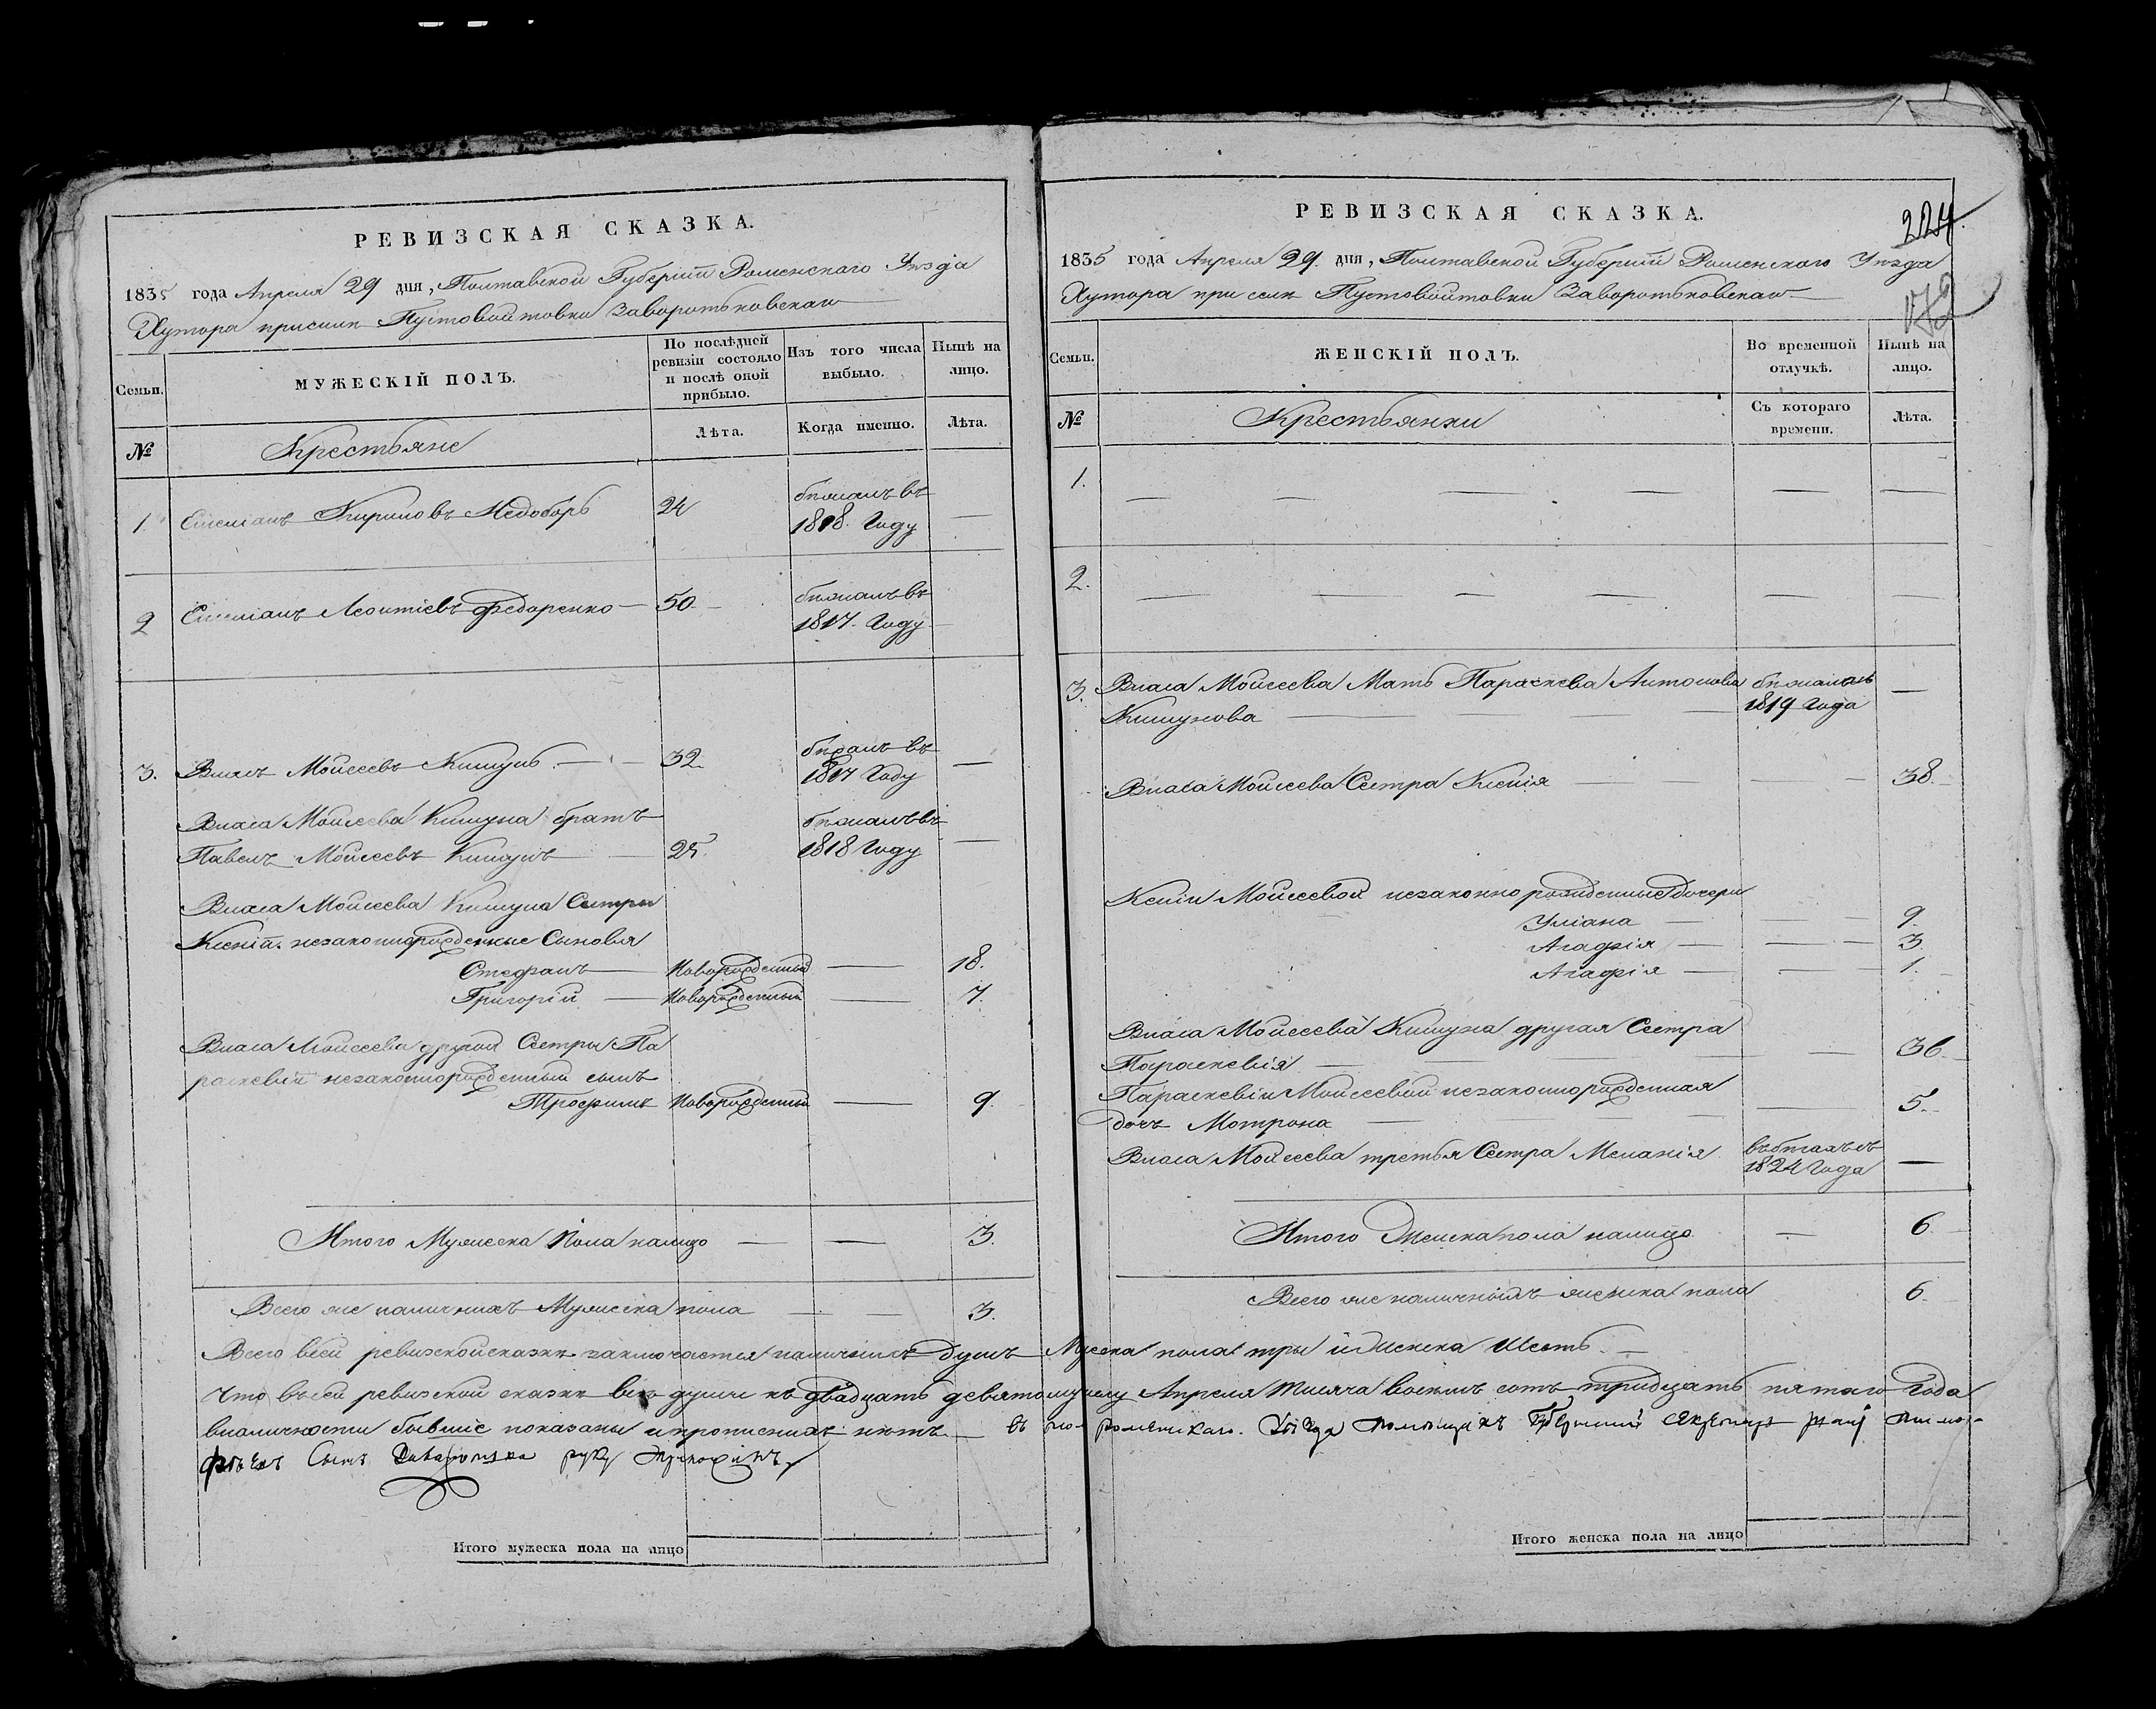 РЕВИЗСКАЯ СКАЗКА.
1835 года Апреля 29 дня, Полтавской Губернiи Роменского Уезда
Хутора приселе Пустовойтовки Заворотьковскаго
Семьи.
МУЖЕСКІЙ ПОЛЪ.
По послѣдней ревизіи состояло и послѣ оной прибыло.
Изъ того числа выбыло.
Нынѣ на лицо.
№
Крестьяне
Лѣта.
Когда именно.
Лѣта.
1. Емелианъ Кириловъ Недоборъ 24 бежалъ въ
1818. Году —
2 Емелианъ Леонтіевъ Федоренко — 50 — бежалъ въ
1817. Году —
3. Власъ Мойсеевъ Кишунъ. — 32. бежалъ въ
1817 Году —
Власа Мойсеева Кишуна братъ
Павелъ Мойсеевъ Кишунъ — 25. бежалъ въ
1818 Году —
Власа Мойсеева Кишуна Сестры
Ксенiи незаконнорожденные Сыновья
Стефанъ — Новорожденный — 18.
Григорій — Новорожденный — 7.
Власа Мойсеева другой Сестры Па
раскевіи незаконнорожденный сынъ
Трофимъ Новорожденный — 9.
Итого Мужеска Пола налицо — — 3.
Всего же наличныхъ Мужеска пола — — 3.
РЕВИЗСКАЯ СКАЗКА.
224.
1835 года Апреля 29 дня, Полтавской Губерніи Роменского Уезда
Хутора при селе Пустовойтовки Заворотьковскаго —
Семьи.
ЖЕНСКІЙ ПОЛЪ.
Во временной отлучкѣ.
Нынѣ на лицо.
№
Крестьянки
Съ котораго времени.
Лѣта.
1. — — — — — —
2. — — — — — —
3. Власа Мойсеева Мать Параскева Антонова бежала съ
Кишунова — — — 1819 Года —
Власа Мойсеева Сестра Ксенія — — 38.
Ксеніи Мойсеевой незаконно рожденные дочери
Уліана — — 9.
Агафія — — 3.
Агафія — — 1.
Власа Мойсеева Кишуна другая Сестра
Параскевія — — — 36.
Параскевіи Мойсеевой незаконнорожденная
дочь Мотрона — — 5.
Власа Мойсеева третья Сестра Меланія въ бегахъ съ
1824 Года —
Итого Женска пола налицо — 6
Всего же наличныхъ женска пола 6.
Всего всей ревизской сказке заключается наличныхъ душъ Мужеска пола три и женска Шесть. —
Что въ сей ревизской сказке все души къ двадцать девятому числу Апреля тысяча восемь сотъ тридцать пятаго Года
вналичности бывшіе показаны и прописныхъ нетъ. — въ томъ роменскаго. Уезда помещикъ Губернский секретарь
Сынъ руку приложилъ
Итого мужеска пола на лицо
Итого женска пола на лицо